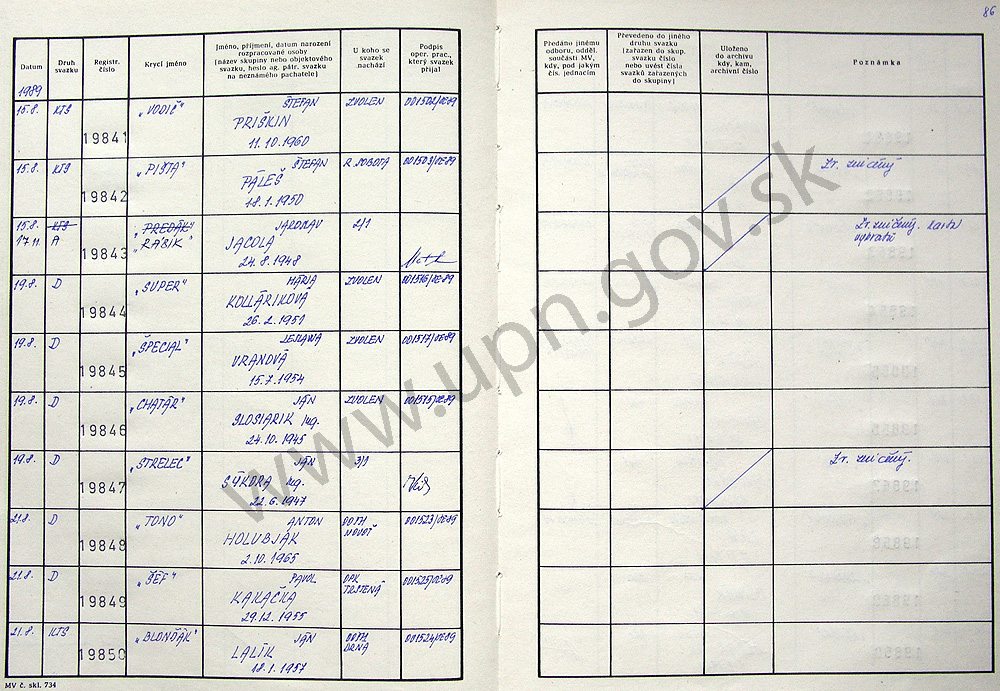 86
Datum
Druh svazku
Registr. číslo
Krycí jméno
Jméno, příjmení, datum narození
rozpracované osoby
(název skupiny nebo objektového
svazku, heslo ag. pátr. svazku
na neznámého pachatele)
U koho se
svazek
nachází
Podpis
oper. prac.,
který svazek
přijal
Předáno jinému
odboru, odděl.
součásti MV,
kdy, pod jakým
čís. jednacím
Převedeno do jiného
druhu svazku
(zařazen do skup.
svazku číslo
nebo uvést čísla
svazků zařazených
do skupiny)
Uloženo
do archivu
kdy, kam,
archivní číslo
Poznámka
1989
15.8. KTS 19841 „VODIČ" ŠTEFAN ZVOLEN 001502/OE-89
PRIŠKIN
11.10.1960
15.8. KTS 19842 „PIŠTA" ŠTEFAN R. SOBOTA 001503/OE-89 Zr. zničený
PÁLEŠ
18.1.1950
15.8. KTS 19843 „PREDÁK" JAROSLAV 2/1 Zr. zničený.
17.11. A „RÁBIK" JACOLA
24.8.1948
19.8. D 19844 „SUPER" MÁRIA ZVOLEN 001516/OE-89
KOLLÁRIKOVÁ
26.2.1951
19.8. D 19845 „ŠPECIAL" ZVOLEN 001517/OE-89
VRANOVÁ
15.7.1954
19.8. D 19846 „CHATÁR" JÁN ZVOLEN 001515/OE-89
SLOSIARIK Ing.
24.10.1945
19.8. D 19847 „STRELEC" JÁN 3/1 Zr. zničený.
SÝKORA Ing.
22.6.1947
21.8. D 19848 „TONO" ANTON OOPK 001523/OE-89
HOLUBJÁK NOVOŤ
2.10.1965
21.8. D 19849 „ŠÉF" PAVOL OPK 001525/OE-89
KAKAČKA TRSTENÁ
29.12.1955
21.8. KTS 19850 „BLONĎÁK" JÁN 001524/OE-89
LALÍK
18.1.1957
MV č. skl. 734
www.upn.gov.sk